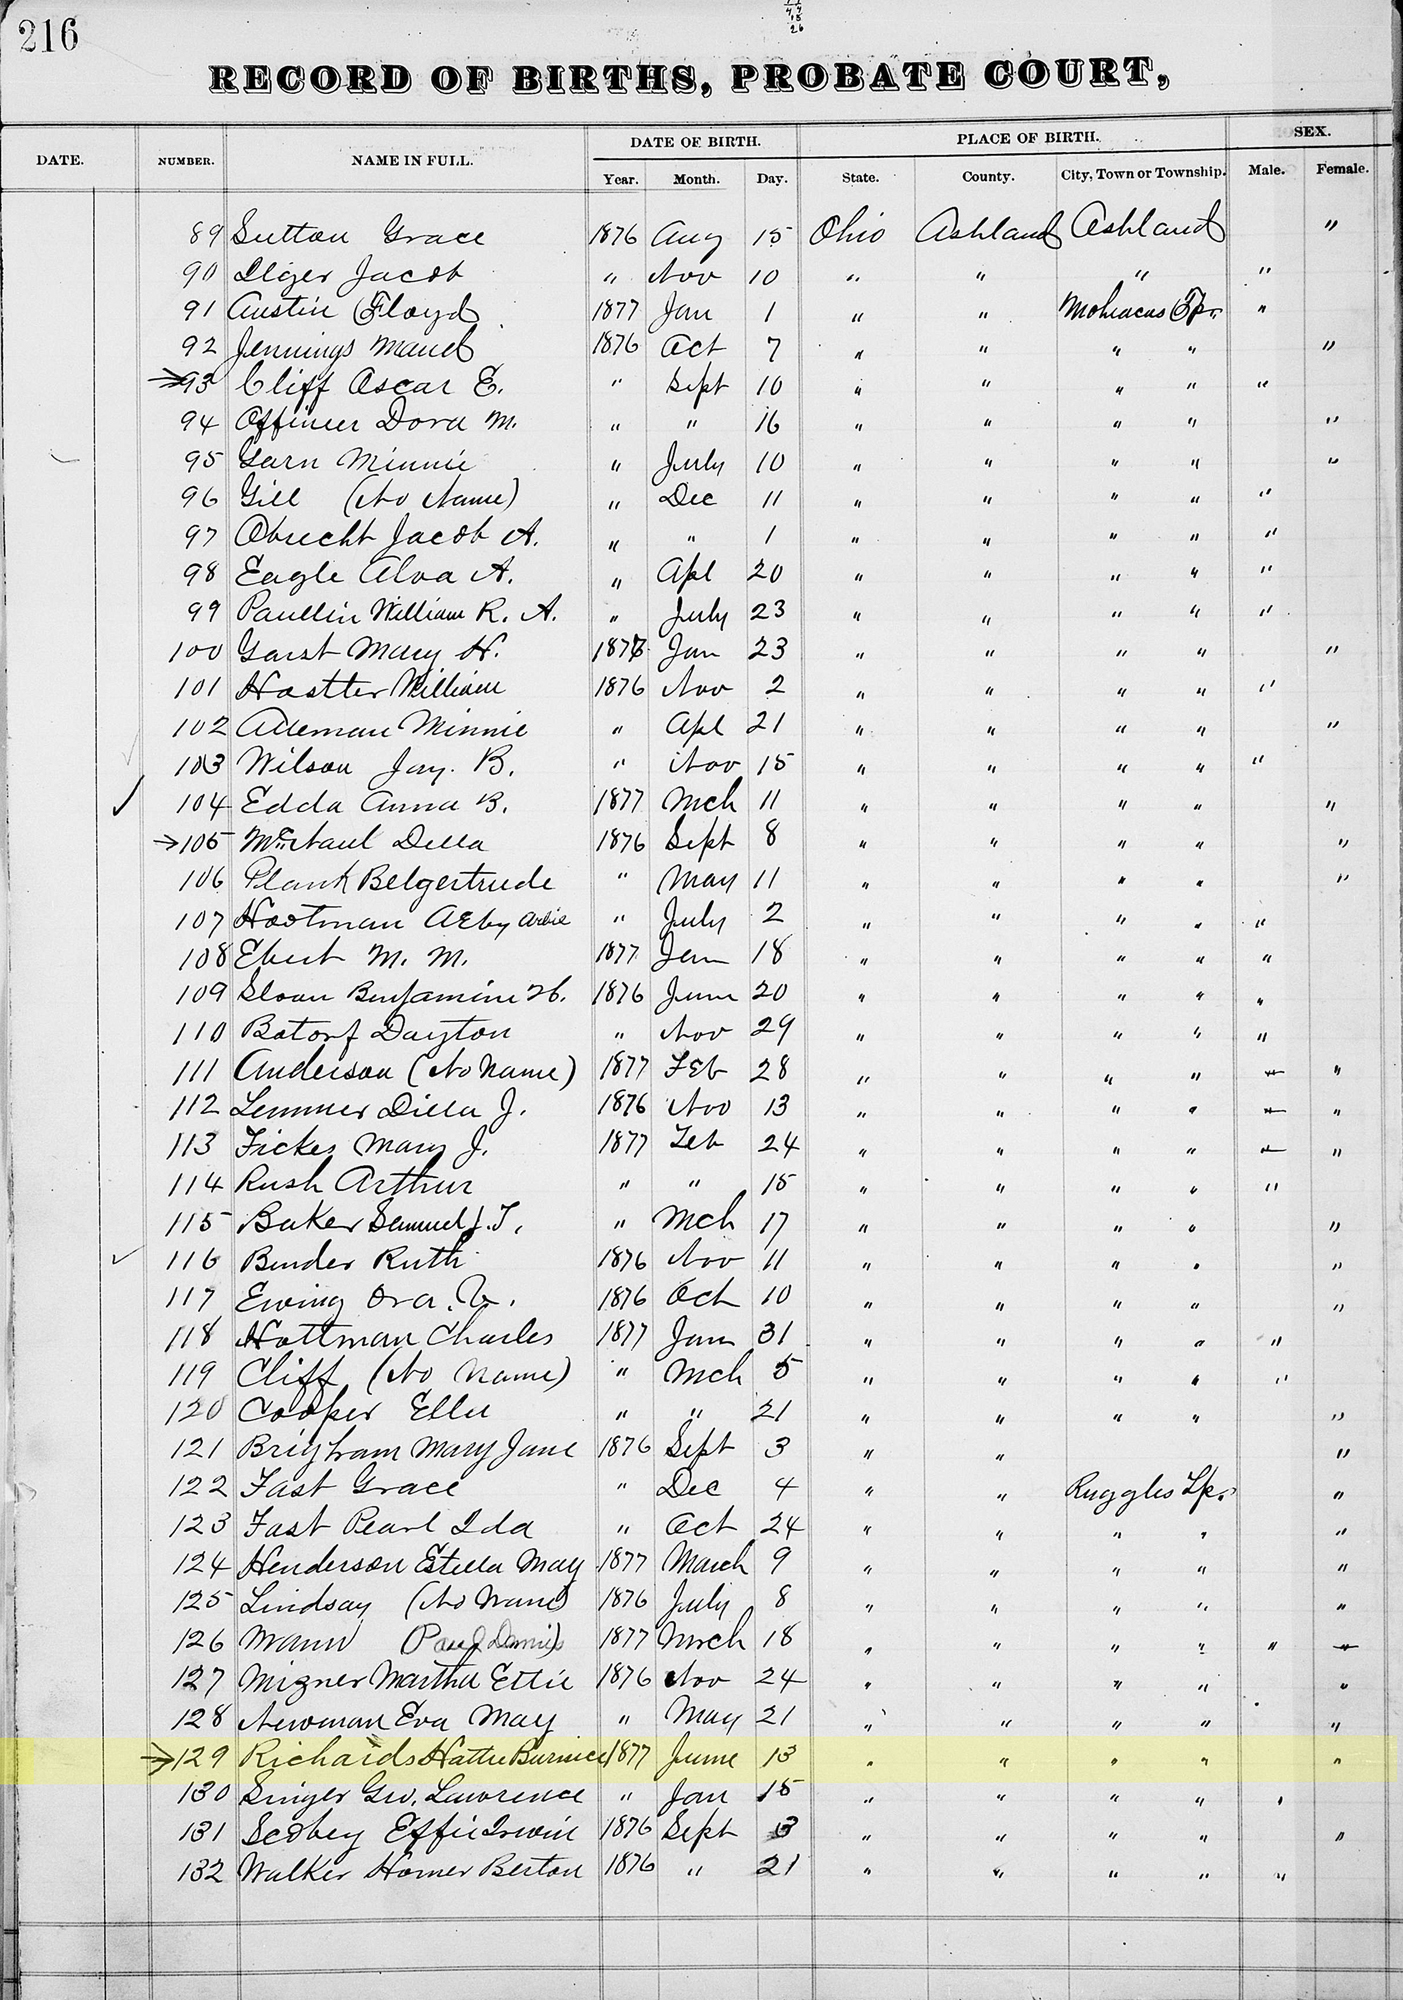 216
RECORD OF BIRTHS, PROBATE COURT,
DATE. NUMBER. NAME IN FULL. DATE OF BIRTH. PLACE OF BIRTH. SEX.
Year. Month. Day. State. County. City, Town or Township. Male. Female.
89 Sutton Grace 1876 Aug 15 Ohio Ashland Ashland "
90 Jacob " Nov 10 " " " "
91 Austin Floyd 1877 Jan 1 " " Tp. "
92 Jennings Maud 1876 Oct 7 " " " " "
93 Cliff Oscar E. " Sept 10 " " " " "
94 Dora M. " " 16 " " " " "
95 Garn Minnie " July 10 " " " " "
96 Gill (No Name) " Dec 11 " " " " "
97 Obrecht Jacob A. " " 1 " " " " "
98 Eagle Alva A. " Apl 20 " " " " "
99 Paullin William R. A. " July 23 " " " " "
100 Garst Mary H. Jan 23 " " " " "
101 Hostter William 1876 Nov 2 " " " " "
102 Alleman Minnie " Apl 21 " " " " "
103 Wilson Jay. B. " Nov 15 " " " " "
104 Edda Anna B. 1877 Mch 11 " " " " "
105 Della 1876 Sept 8 " " " " "
106 Plank Belgertrude " May 11 " " " " "
107 Hootman Arbie " July 2 " " " " "
108 Ebert M. M. 1877 Jan 18 " " " " "
109 Sloan Benjamine H. 1876 June 20 " " " " "
110 Botorf Dayton " Nov 29 " " " " "
111 Anderson (No Name) 1877 Feb 28 " " " " "
112 Lemmer Dilla J. 1876 Nov 13 " " " " "
113 Fickes Mary J. 1877 Feb 24 " " " " "
114 Rush Arthur " " 15 " " " " "
115 Baker Samuel J. T. " Mch 17 " " " " "
116 Bender Ruth 1876 Nov 11 " " " " "
117 Ewing Ora. V. 1876 Oct 10 " " " " "
118 Hottman Charles 1877 Jan 31 " " " " "
119 Cliff (No Name) " Mch 5 " " " " "
120 Cooper Ella " " 21 " " " " "
121 Brigham Mary Jane 1876 Sept 3 " " "
122 Fast Grace " Dec 4 " " Ruggles Tp. "
123 Fast Pearl Ida " Oct 24 " " " " "
124 Henderson Estella May 1877 March 9 " " " " "
125 Lindsay (No Name) 1876 July 8 " " " " "
126 Mann 1877 March 18 " " " " "
127 Migner Martha Ettie 1876 Nov 24 " " " " "
128 Newman Eva May " May 21 " " " " "
129 Richards Hattie Burnice 1877 June 13 " " " " "
130 Singer Geo. Lawrence " Jan 15 " " " " "
131 Scobey Effie Irwin 1876 Sept 3 " " " " "
132 Walker Homer Berton 1876 " 21 " " " " "